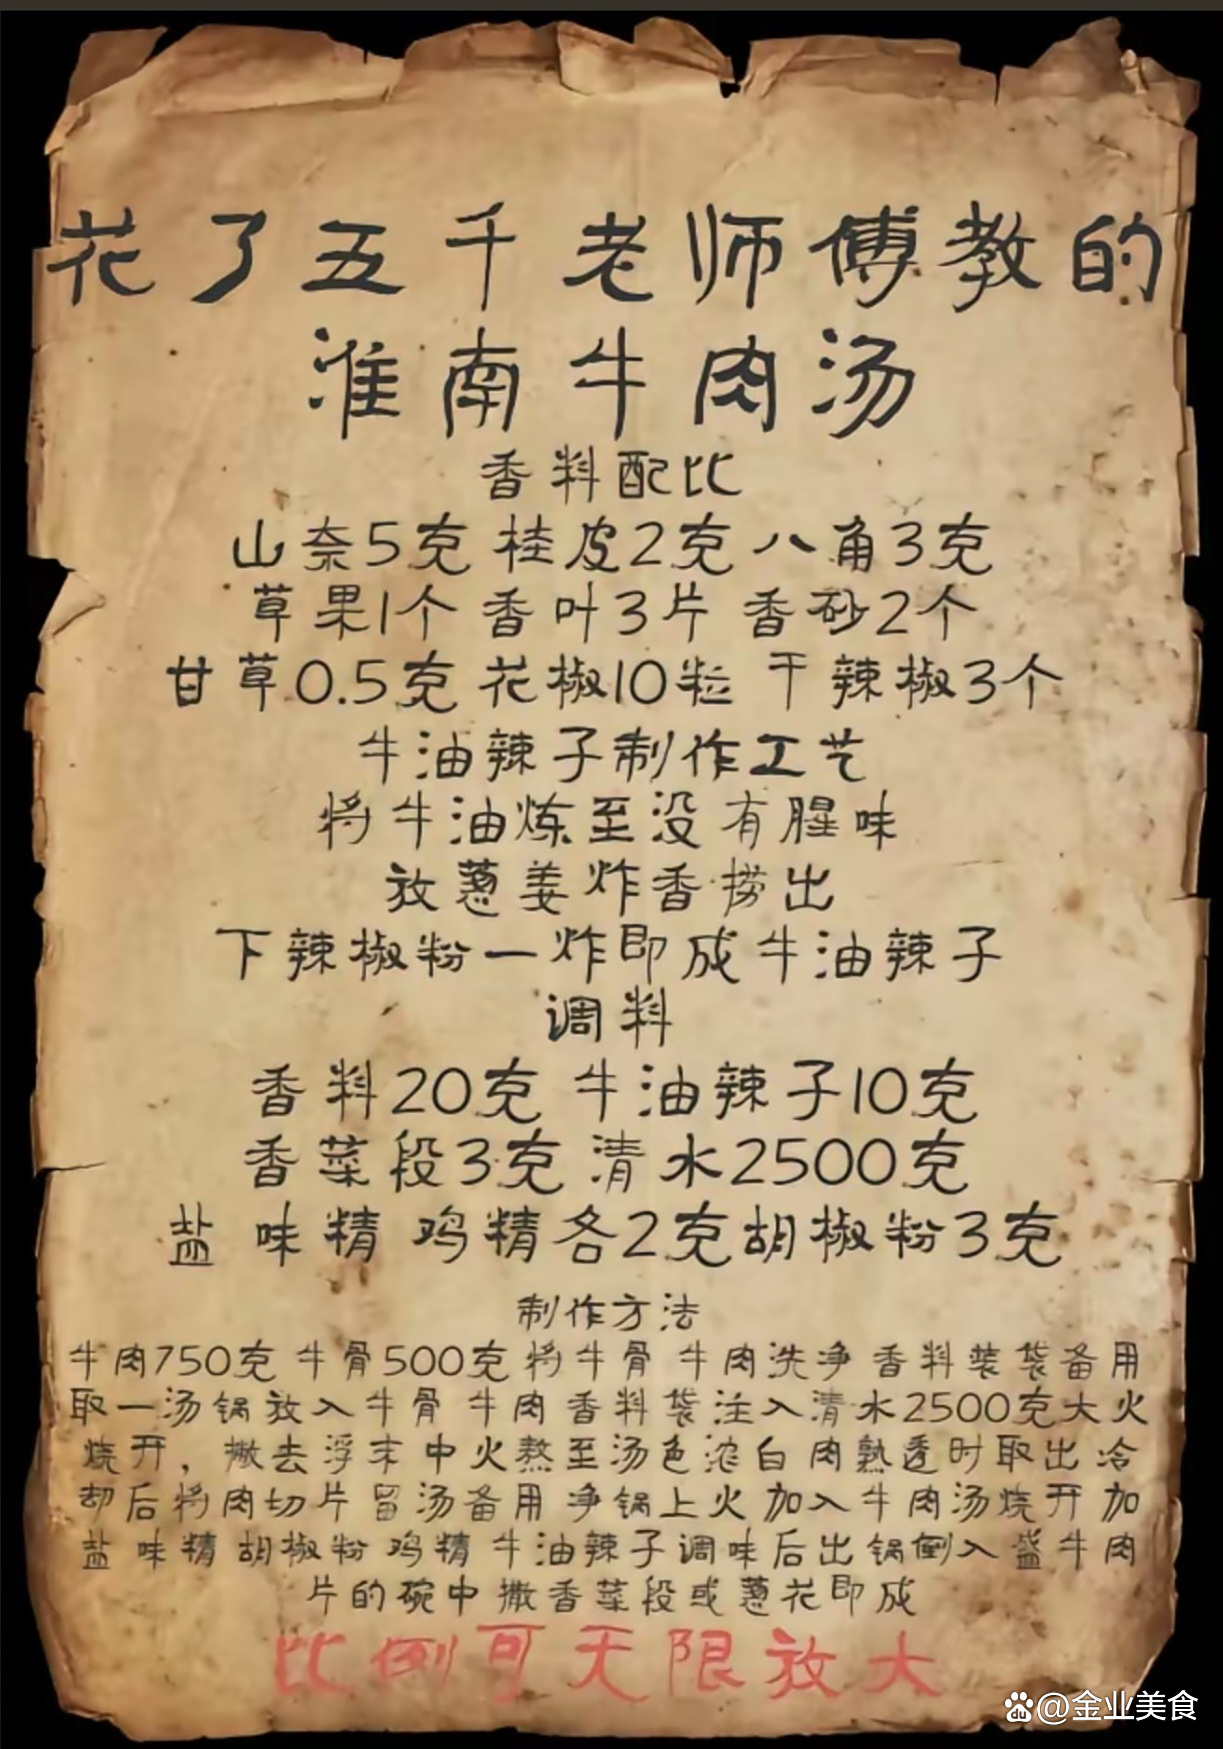 花了五千老师傅教的
淮南牛肉汤
香料配比
山奈5克 桂皮2克 八角3克
草果1个 香叶3片 香砂2个
甘草0.5克 花椒10粒 干辣椒3个
牛油辣子制作工艺
将牛油炼至没有腥味
放蔥姜炸香捞出
下辣椒粉一炸即成牛油辣子
调料
香料20克 牛油辣子10克
香菜段3克 清水2500克
盐 味精 鸡精各2克胡椒粉3克
制作方法
牛肉750克 牛骨500克 将牛骨 牛肉洗净 香料装袋备用
取一汤锅放入牛骨 牛肉 香料袋注入清水2500克大火
烧开，撇去浮末中火熬至汤色浓白肉熟透时取出冷
却后将肉切片 留汤备用 净锅上火 加入牛肉汤烧开 加
盐 味精 胡椒粉 鸡精 牛油辣子调味后出锅倒入盛牛肉
片的碗中撒香菜段或蔥花即成
比例可无限放大
@金业美食